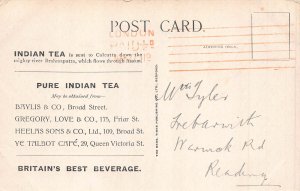 POST CARD.
LONDON
INDIAN TEA is sent to Calcutta down the
mighty river Brahmaputra, which flows through Assam.
PURE INDIAN TEA
May be obtained from—
BAYLIS & CO., Broad Street.
GREGORY, LOVE & CO., 175, Friar St.
HEELAS SONS & CO., Ltd., 109, Broad St.
YE TALBOT CAFÉ, 29, Queen Victoria St.
BRITAIN'S BEST BEVERAGE.
Wm Tyler
Trebarwith
Warwick Rd
Reading